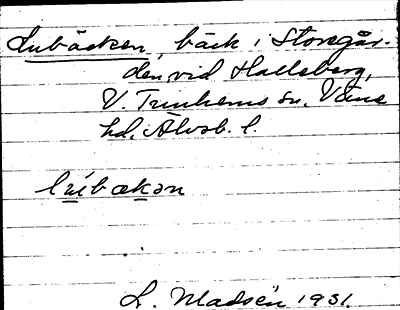 Lubäcken, bäck i Storegår-
den vid Halleberg,
V. Trunhems sn. Väne
hd. Älvsb. l.
lúbækən
L. Madsén 1931.